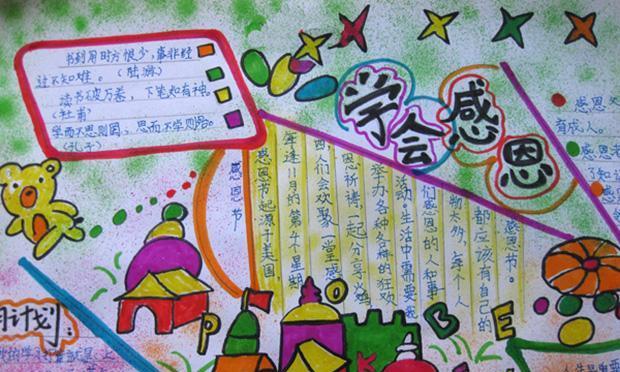 书到用时方恨少，事非经
过不知难。（陆游）
读书破万卷，下笔如有神。
（杜甫）
学而不思则罔，思而不学则殆。
（孔子）
学会感恩
感恩节
感恩节起源于美国，
每逢11月的第4个星期
四，人们会欢聚一堂感
恩祈祷，一起分享火鸡
举办各种各样的狂欢
活动。生活中需要我
们感恩的人和事
物太多，每个人
都应该有自己的
感恩节。
感恩
育成人。
感恩
了知
计划：
P
O
K
B
E